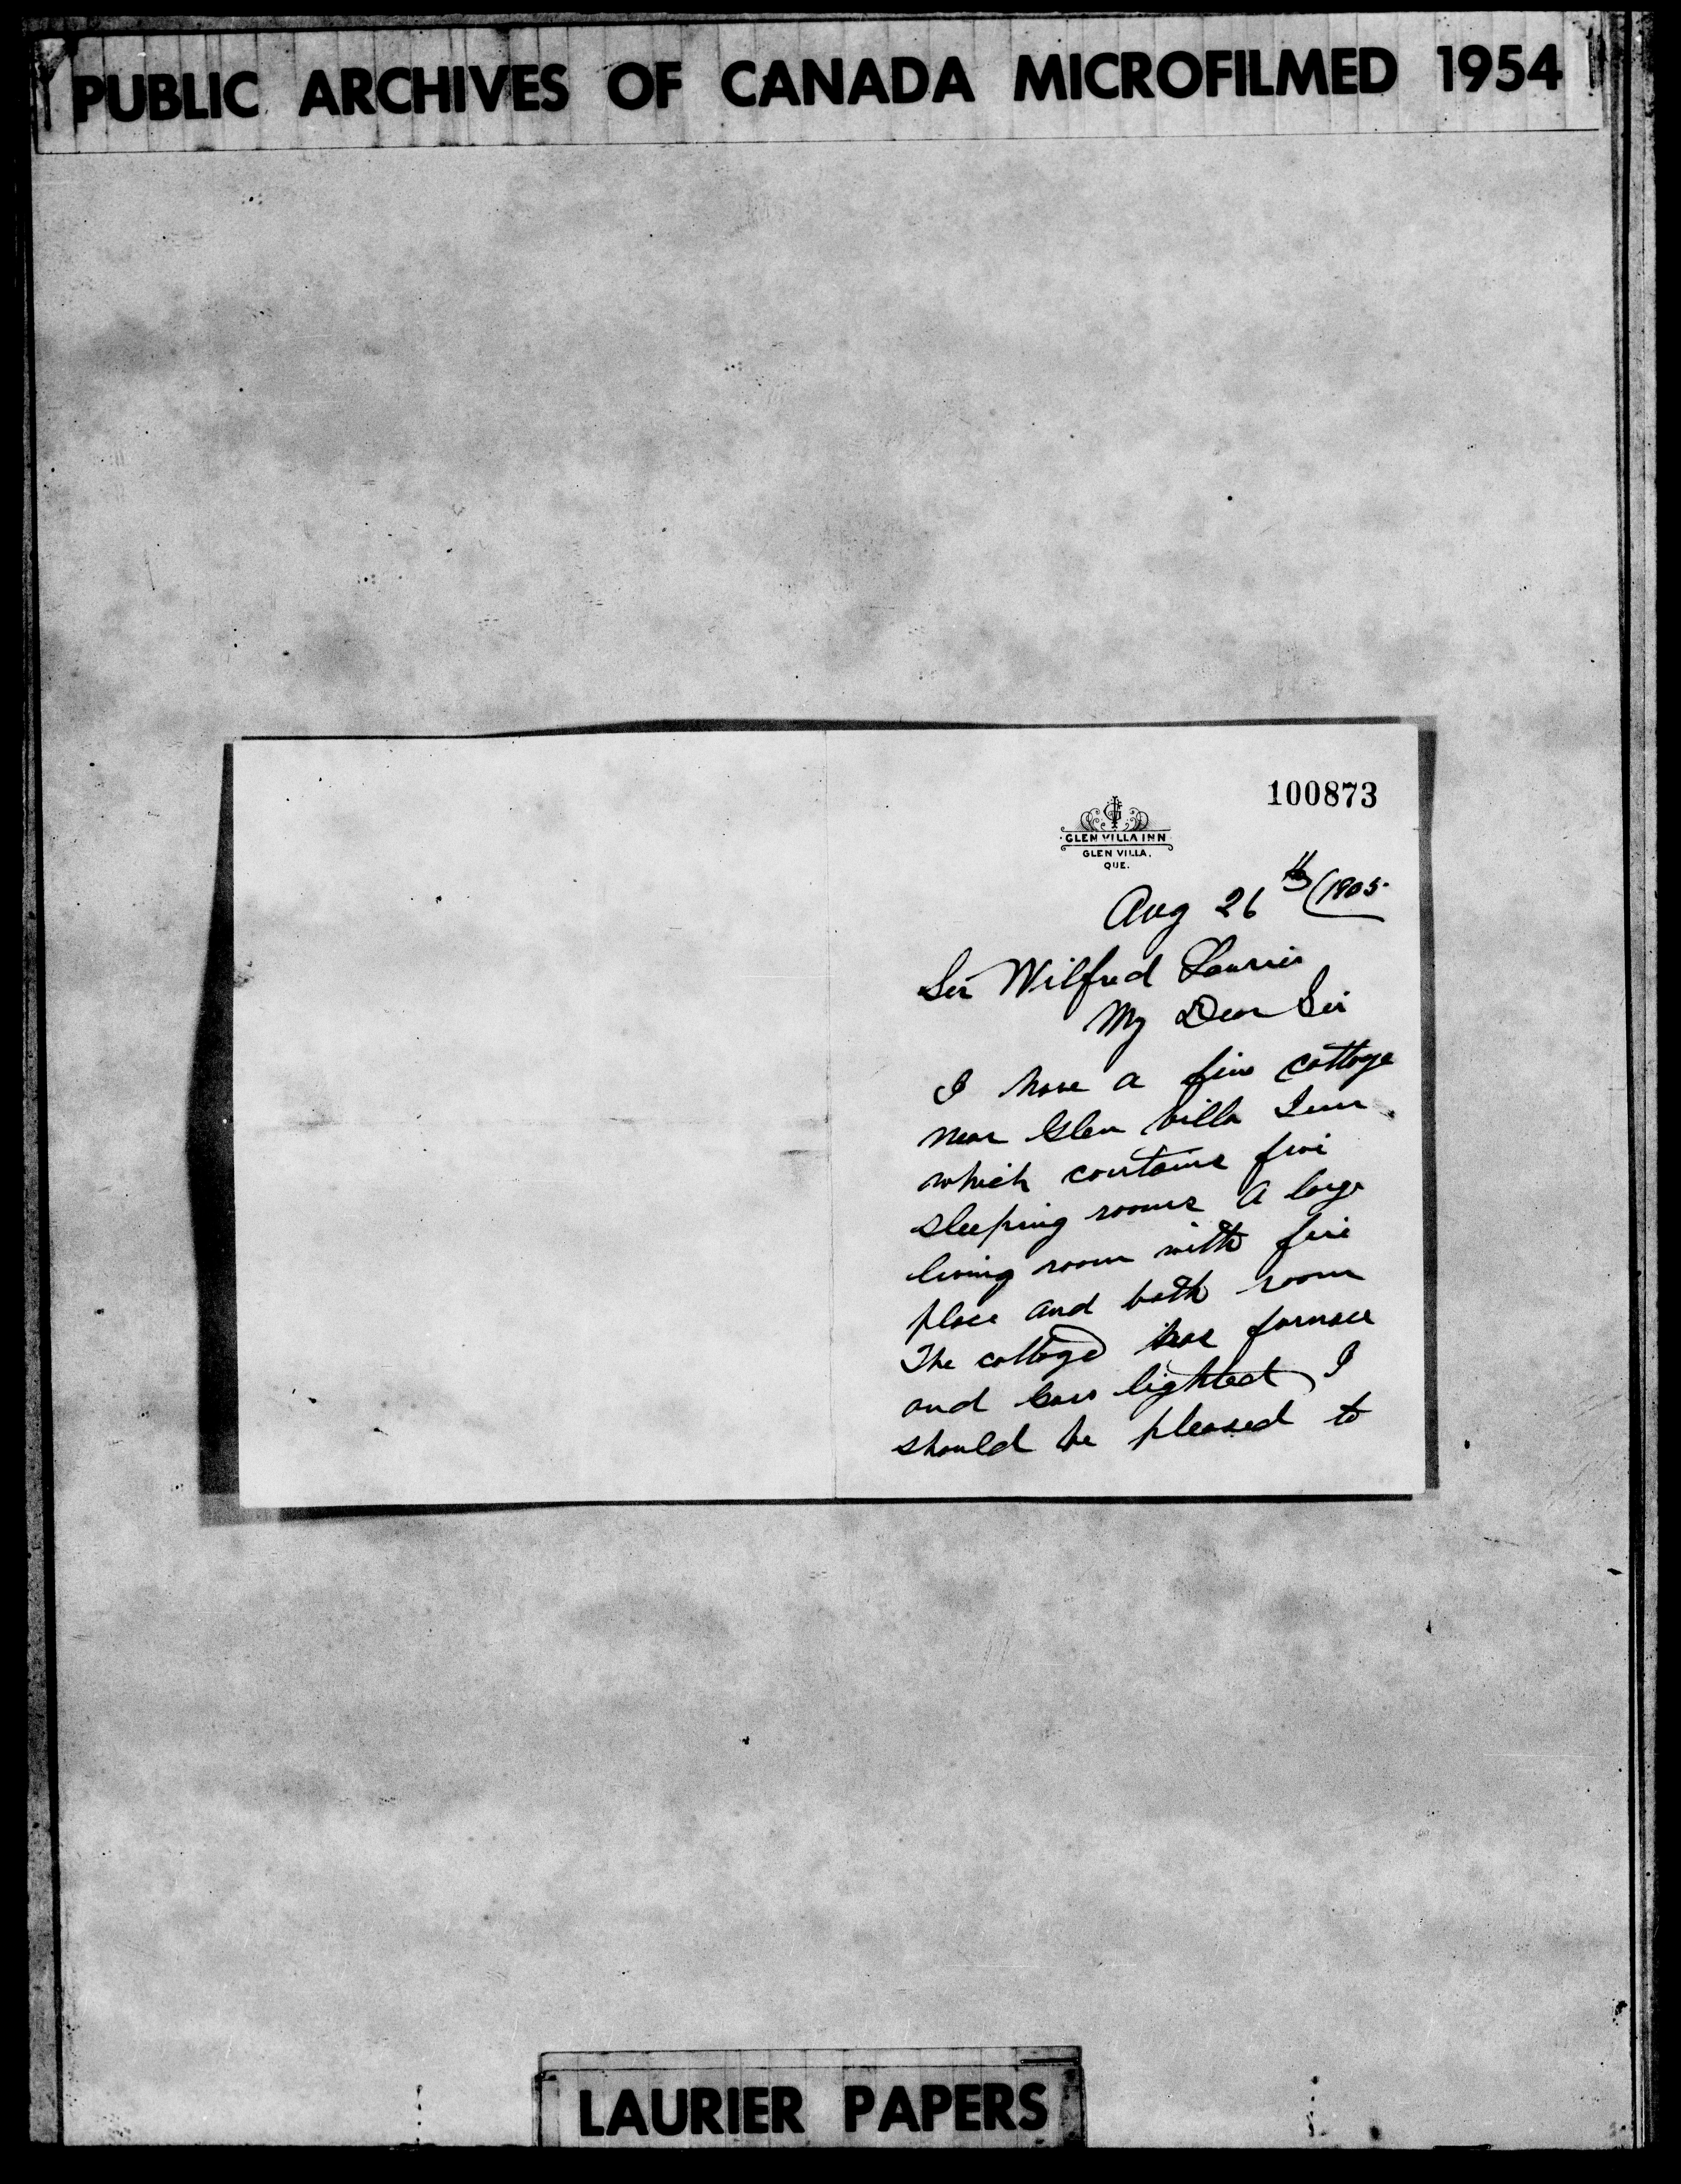 PUBLIC ARCHIVES OF CANADA MICROFILMED 1954
100873
GLEN VILLA INN
GLEN VILLA,
QUE.
Aug 26th 1905.
Sir Wilfred Laurier
My Dear Sir
I have a fine cottage
near Glen Villa Inn
which contains five
sleeping rooms a large
living room with fire
place and bath room
The cottage has furnace
and Gas lighted I
should be pleased to
LAURIER PAPERS